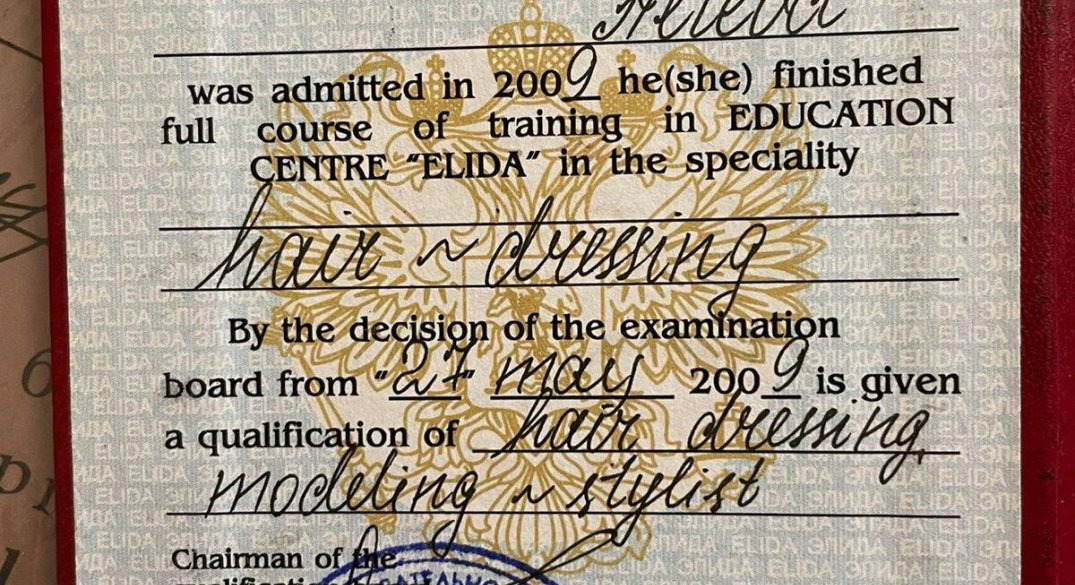 was admitted in 2009 he(she) finished
full course of training in EDUCATION
CENTRE "ELIDA" in the speciality
hair ~ dressing
By the decision of the examination
board from "27" may 2009 is given
a qualification of hair dressing,
modeling ~ stylist
Chairman of the